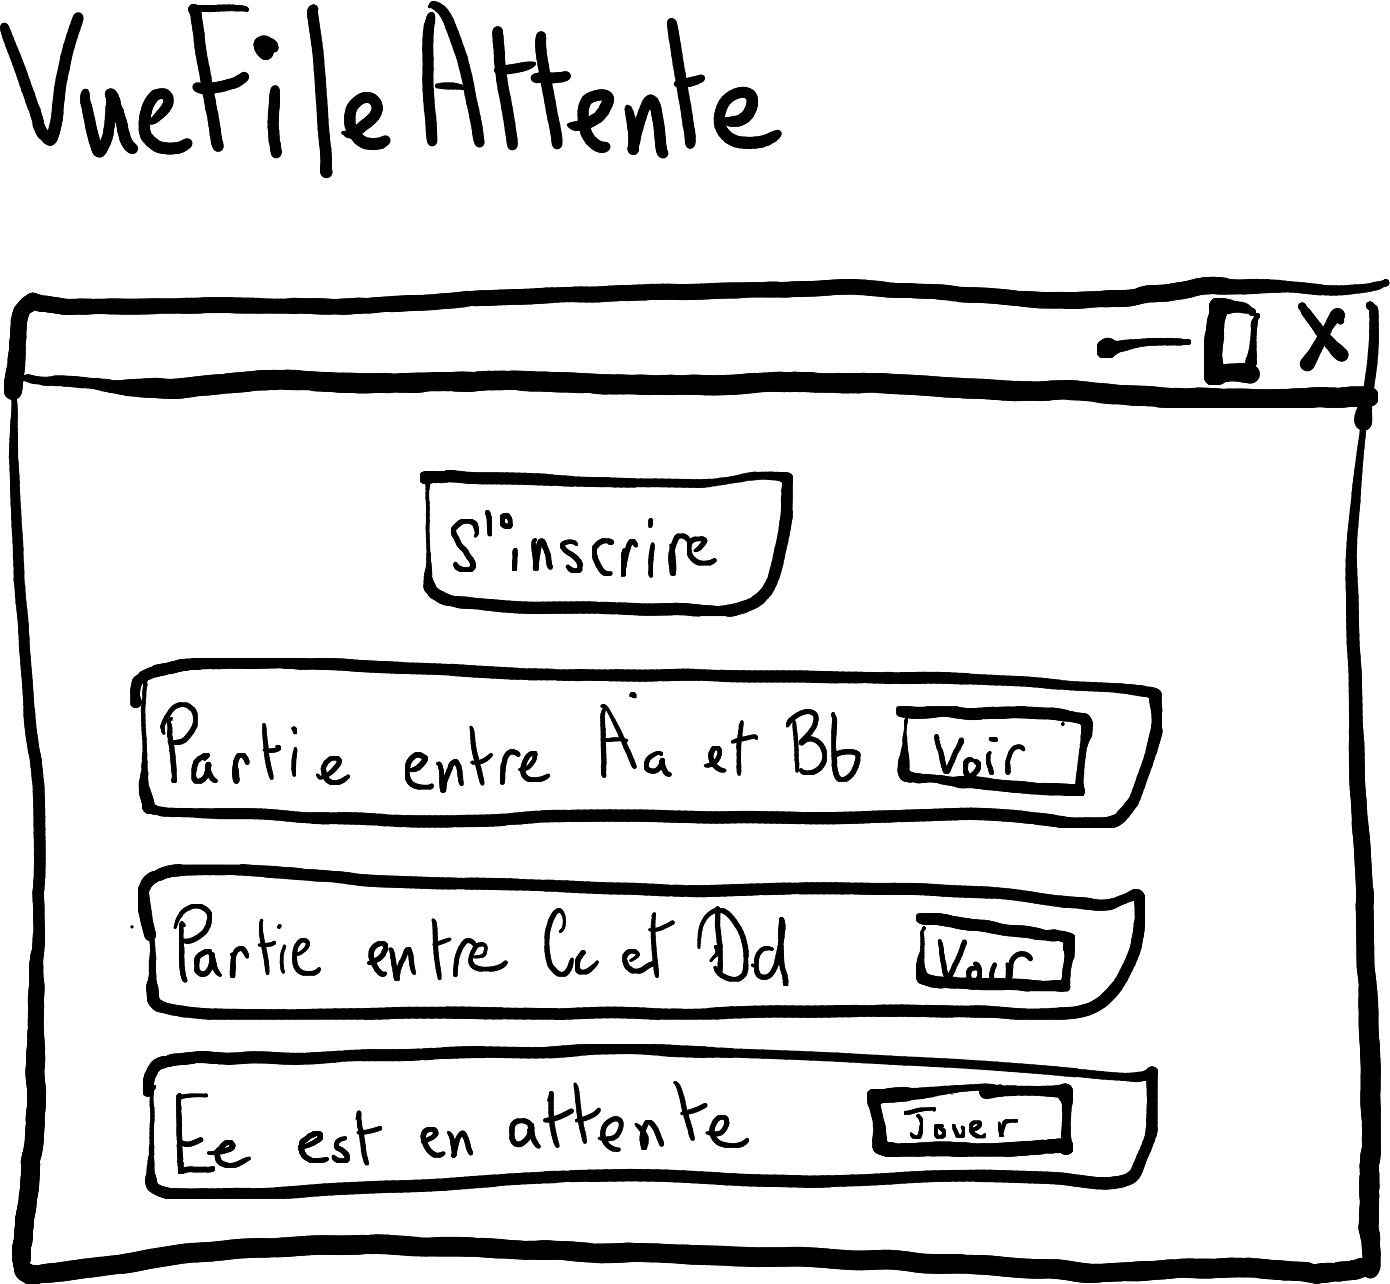 VueFileAttente
S'inscrire
Partie entre Aa et Bb Voir
Partie entre Cc et Dd Voir
Ee est en attente Jouer